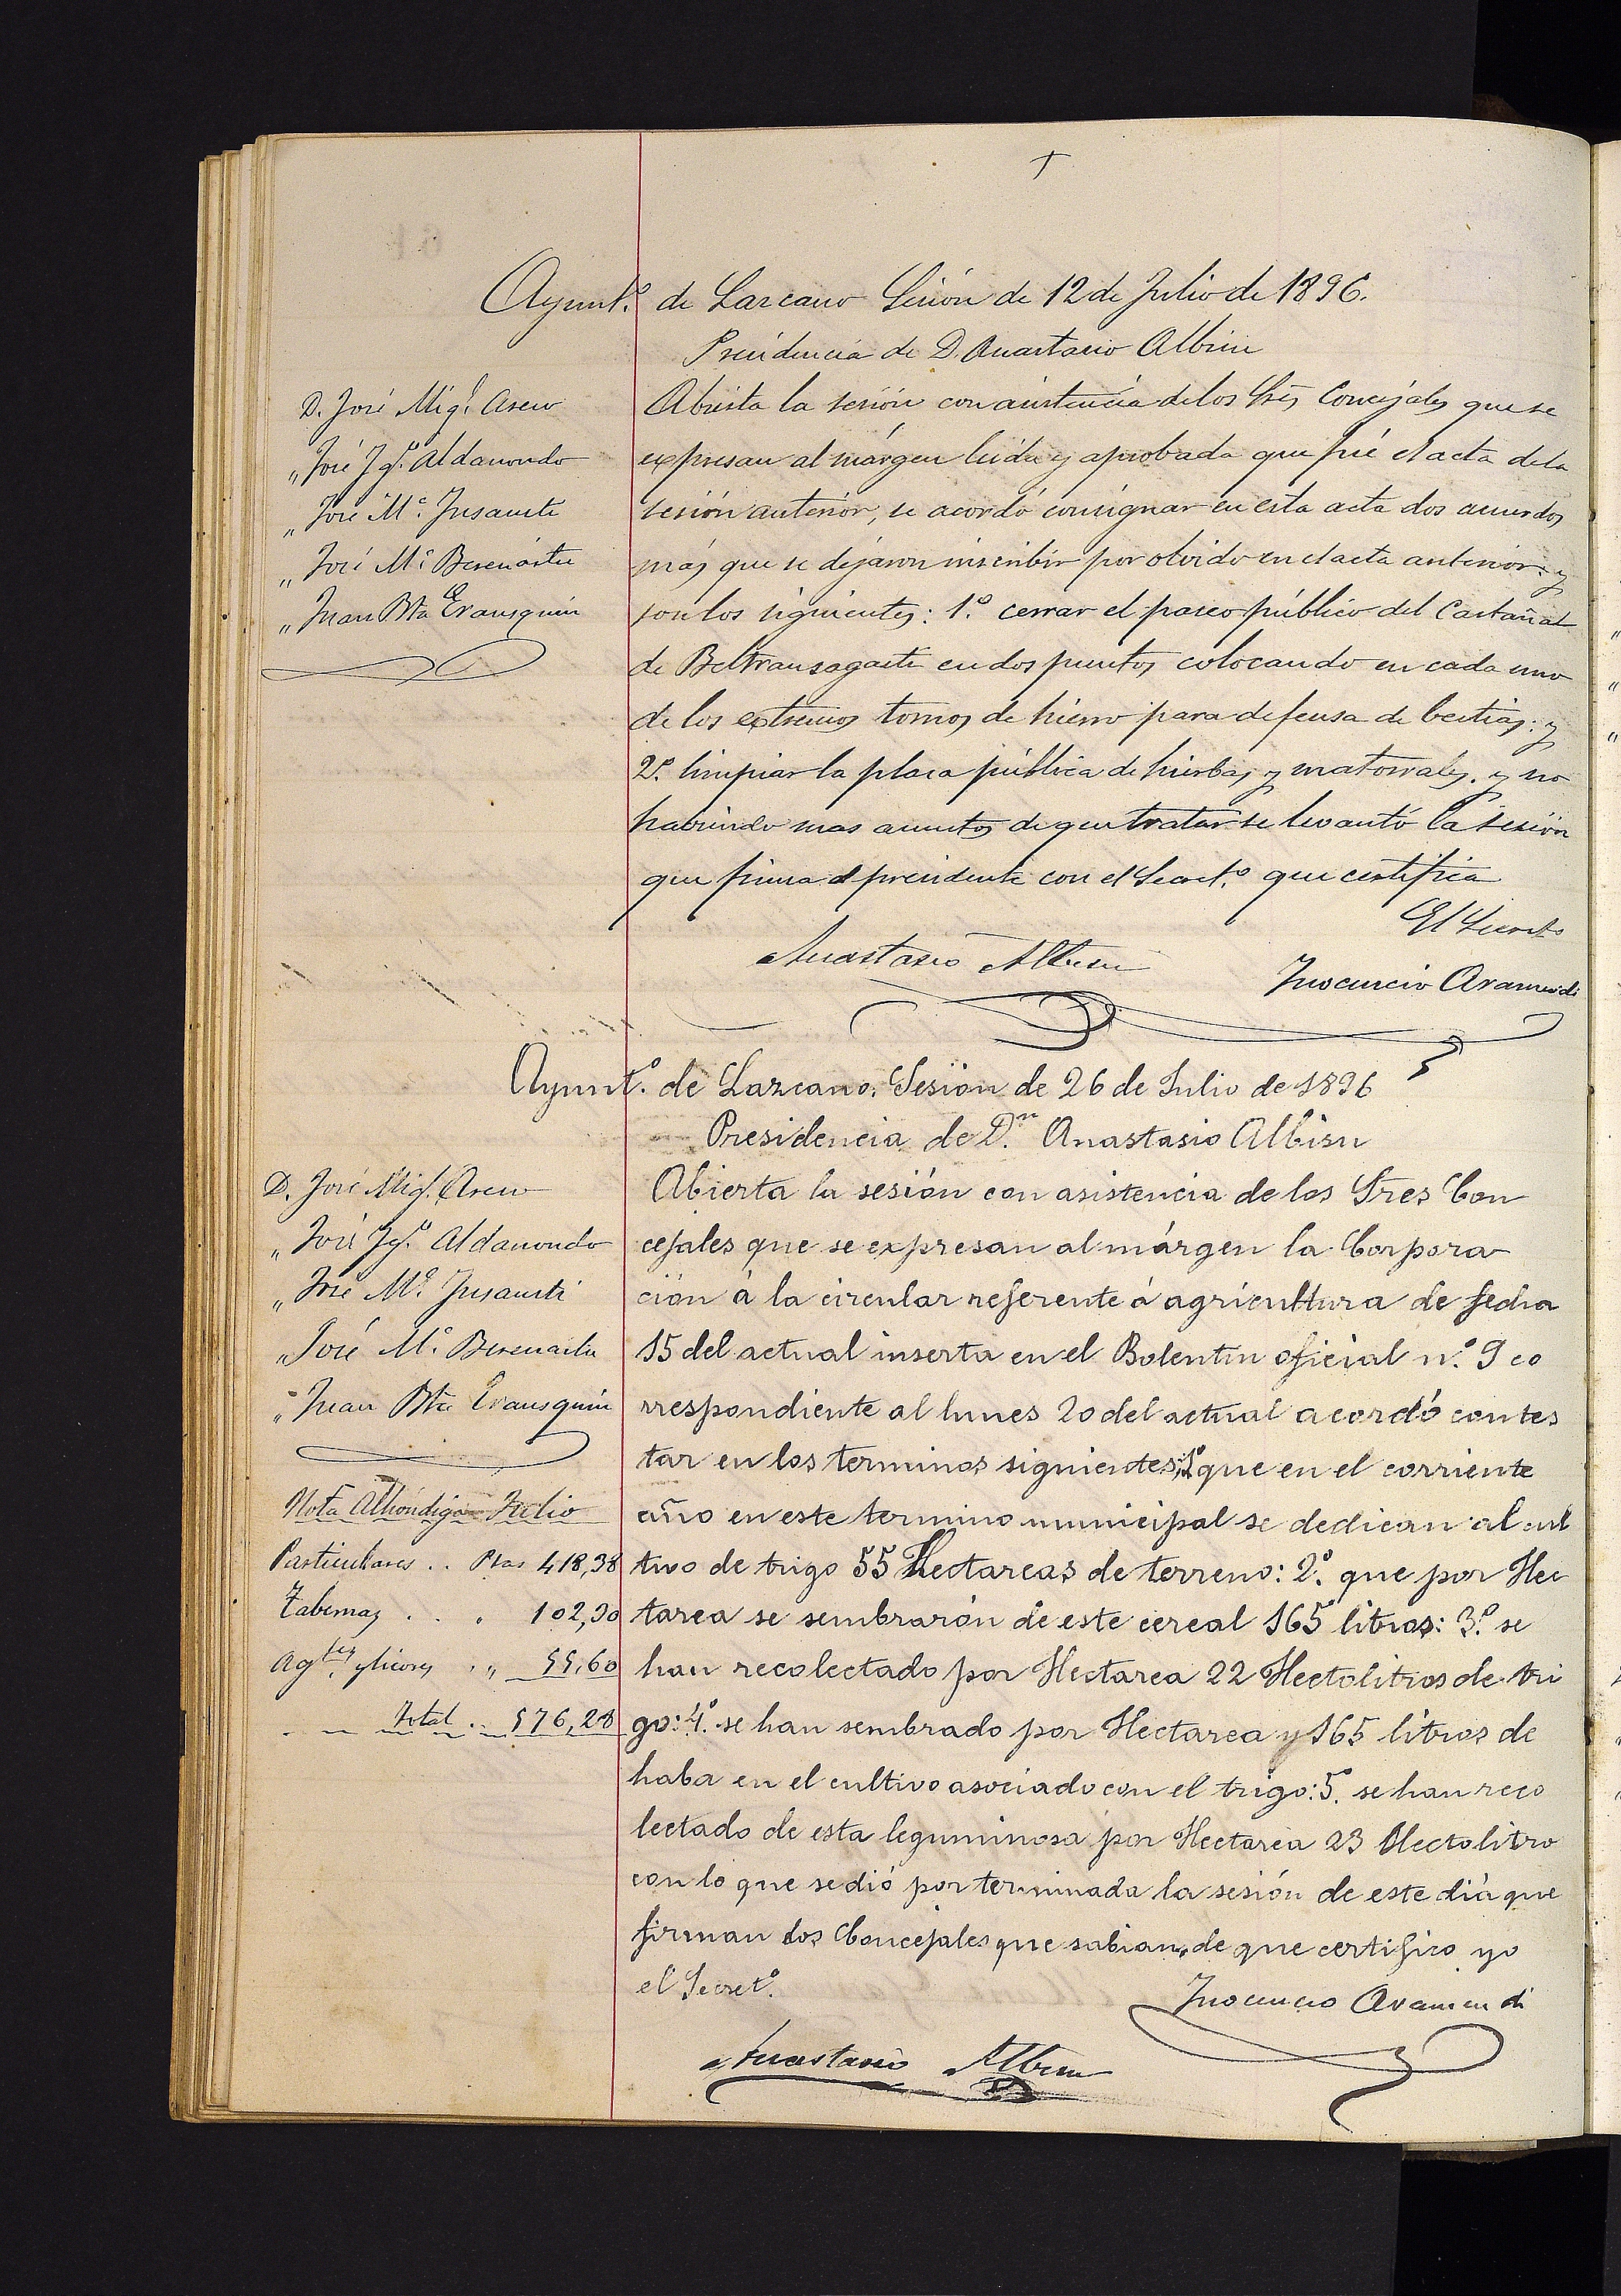 Ayunt.º de Lazcano Sesión de 12 de Julio de 1896.
Presidencia de D. Anastasio Albisu
D. José Mig.l Aseu
" José Ig.º Aldanondo
" José M.ª Insausti
" José M.ª Berenastu
" Juan Bta Erausquin
Abierta la sesión con asistencia de los Sres Concejales que se
expresan al márgen leida y aprobada que fué el acta de la
sesión anterior, se acordó consignar en esta acta dos acuerdos
más que se dejaron inscribir por olvido en el acta anterior: y
son los siguientes: 1.º cerrar el paseo público del Castañal
de Beltransagasti en dos puntos colocando en cada uno
de los extremos tornos de hierro para defensa de bestias: y
2.º limpiar la plaza pública de hierbas y matorrales. y no
habiendo mas asuntos de que tratar se levantó la sesión
que firma el presidente con el Secret.º que certifica
El Secreto
Anastasio Albisu
Inocencio Aramendi
Ayunt.º de Lazcano. Sesión de 26 de Julio de 1896
Presidencia de D.n Anastasio Albisu
D. José Mig.l Aseu
" José Ig.º Aldanondo
" José M.ª Insausti
" José M.ª Berenastu
" Juan Bta Erausquin
Abierta la sesión con asistencia de los Sres Con
cejales que se expresan al márgen la Corpora
ción á la circular referente á agricultura de fecha
15 del actual inserta en el Bolentin oficial n.º 9 co
rrespondiente al lunes 20 del actual acordó contes
tar en los terminos siguientes; 1.º que en el corriente
año en este termino municipal se dedican al cul
tivo de trigo 55 Hectareas de terreno: 2.º que por Hec
tarea se sembrarón de este cereal 165 litros: 3.º se
han recolectado por Hectarea 22 Hectolitros de tri
go: 4.º se han sembrado por Hectarea y 165 litros de
haba en el cultivo asociado con el trigo: 5.º se han reco
lectado de esta leguminosa por Hectarea 23 Hectolitro
con lo que se dió por terminada la sesión de este dia que
firman los Concejales que sabian, de que certifico yo
el Secret.º
Nota Alhóndiga Julio
Particulares .. Ptas 418,38
Tabernas . . " 102,30
Ag.tes y licores . " 55,60
Total .. 576,28
Inocencio Aramendi
Anastasio Albisu